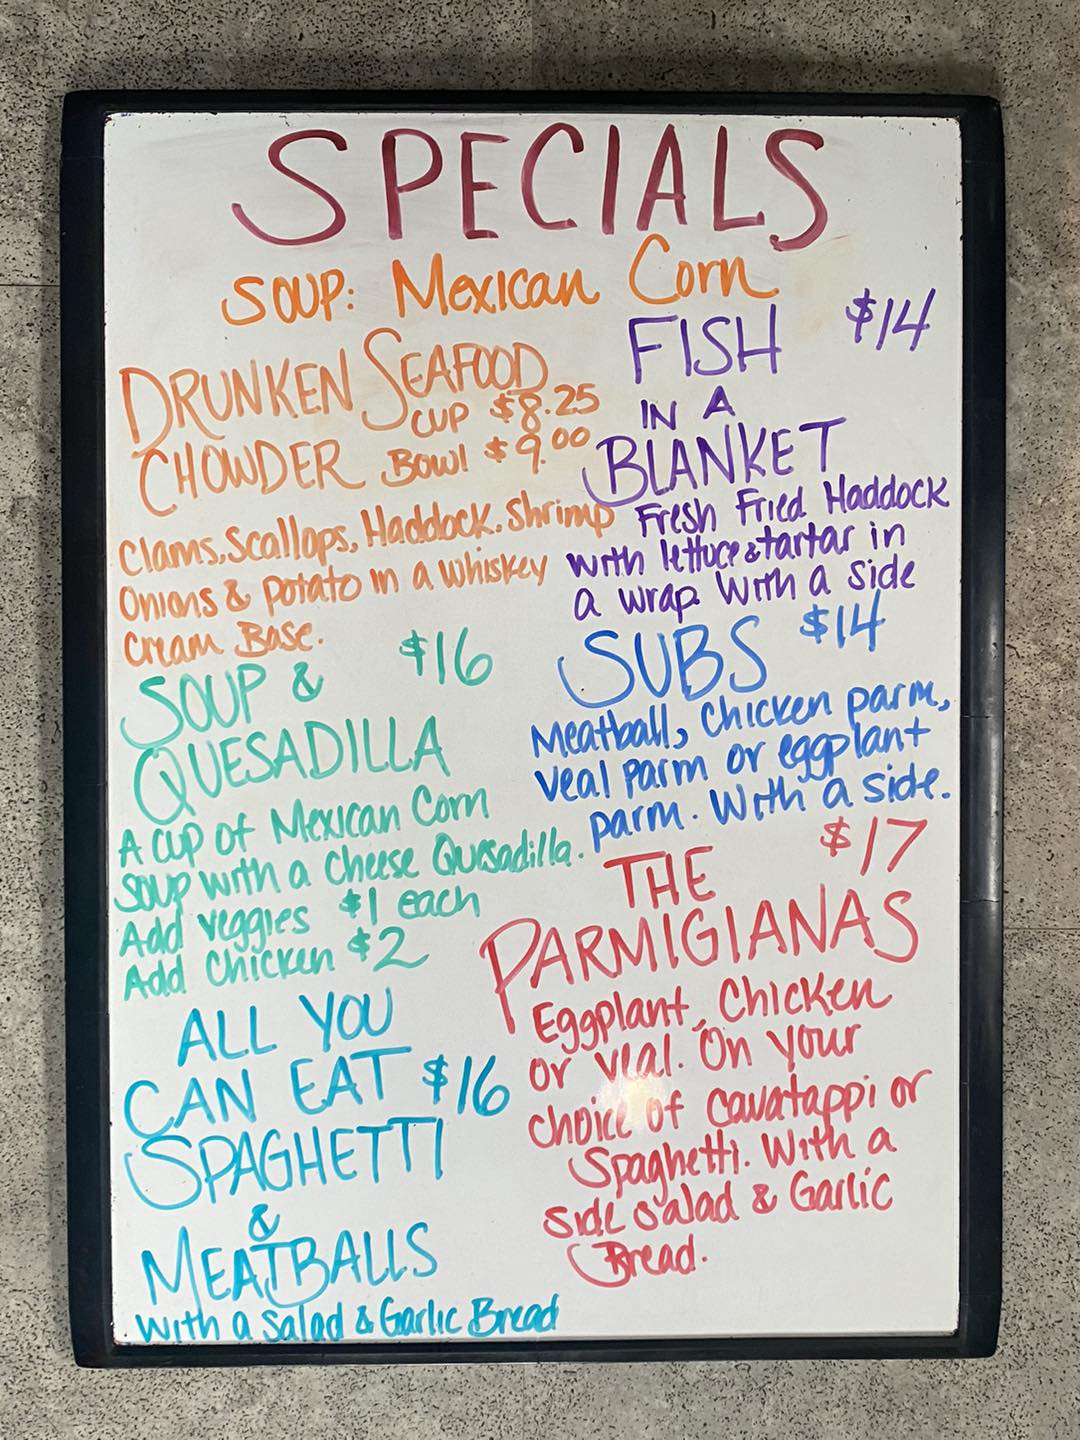 SPECIALS
SOUP: Mexican Corn
DRUNKEN SEAFOOD
CUP $8.25
CHOWDER Bowl $9.00
Clams, Scallops, Haddock. Shrimp
Onions & potato in a whiskey
Cream Base.
SOUP & $16
QUESADILLA
A cup of Mexican Corn
soup with a Cheese Quesadilla.
Add veggies $1 each
Add Chicken $2
ALL YOU
CAN EAT $16
SPAGHETTI
&
MEATBALLS
with a Salad & Garlic Bread
FISH $14
IN A
BLANKET
Fresh Fried Haddock
with lettuce & tartar in
a wrap. With a side
SUBS $14
Meatball, Chicken parm,
Veal parm or eggplant
parm. With a side.
THE $17
PARMIGIANAS
Eggplant, Chicken
or veal. On your
choice of cavatappi or
Spaghetti. With a
side salad & Garlic
Bread.